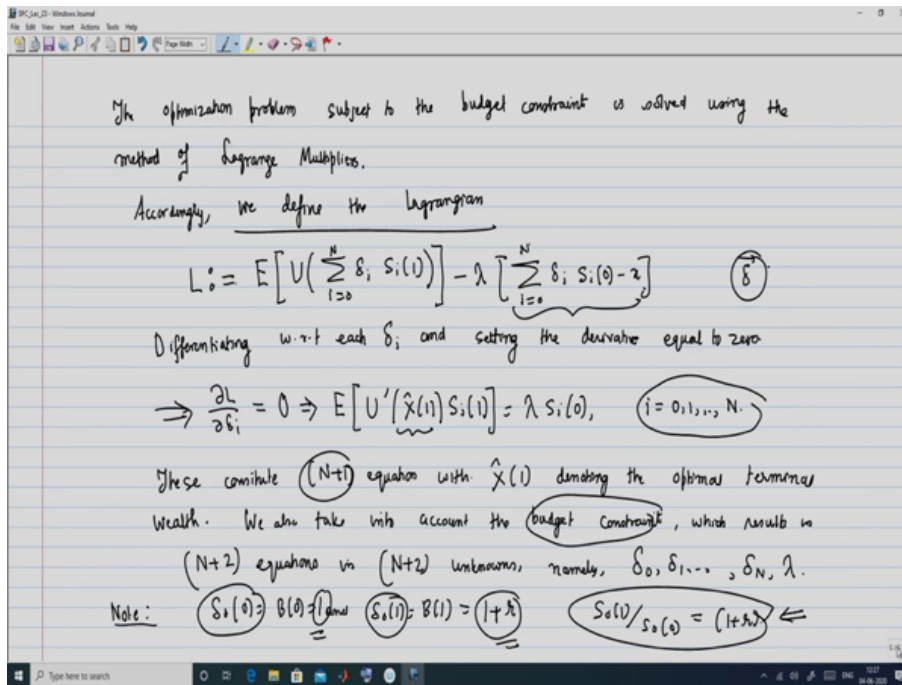 SPC_Lec_23 - Windows Journal
File Edit View Insert Actions Tools Help
Page Width
The optimization problem subject to the budget constraint is solved using the
method of Lagrange Multipliers.
Accordingly, we define the Lagrangian
L := E[U(∑_{i=0}^{N} δ_i S_i(1))] - λ[∑_{i=0}^{N} δ_i S_i(0) - x] δ⃗
Differentiating w.r.t each δ_i and setting the derivative equal to zero
⇒ ∂L/∂δ_i = 0 ⇒ E[U'(X̂(1)) S_i(1)] = λ S_i(0), i = 0,1,.., N.
These constitute (N+1) equation with X̂(1) denoting the optimal terminal
wealth. We also take into account the budget constraint, which results in
(N+2) equations in (N+2) unknowns, namely, δ_0, δ_1..., δ_N, λ.
Note: S_0(0) = B(0) = 1 and S_0(1) = B(1) = 1+r S_0(1)/S_0(0) = (1+r) ⇐
Type here to search
ENG
12:27
04-06-2020